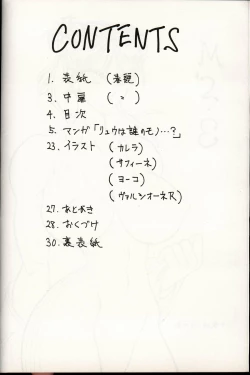 CONTENTS
1. 表紙 (本穂)
3. 中扉 ( 〃 )
4. 目次
5. マンガ「リュウは誰のモノ…?」
23. イラスト (カレラ)
(サフィーネ)
(ヨーコ)
(ヴァルシオーネR)
27. あとがき
28. おくづけ
30. 裏表紙